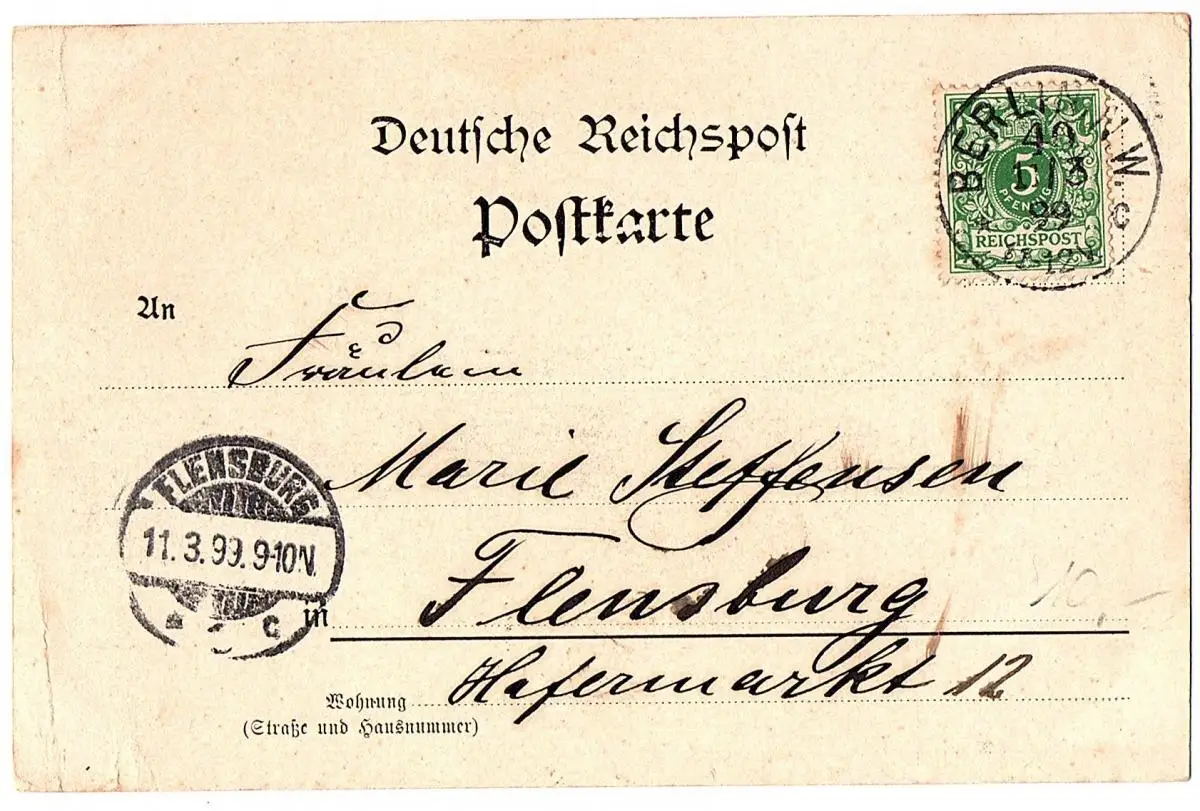 Deutsche Reichspost
Postkarte
BERLIN N.W.
40
11/3
99
12 N
c
5
PFENNIG
REICHSPOST
An
Fräulein
Marie Steffensen
FLENSBURG
11. 3. 99. 9-10N.
c
in Flensburg
10,-
Wohnung Hafermarkt 12
(Straße und Hausnummer)